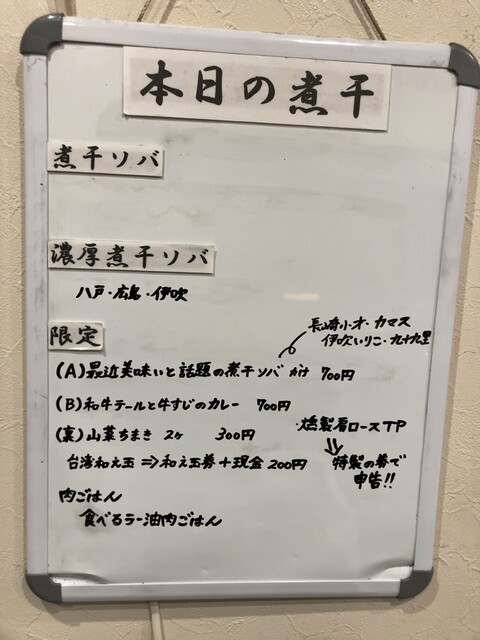 本日の煮干
煮干ソバ
濃厚煮干ソバ
八戸・広島・伊吹
限定
長崎小才・カマス
伊吹いりこ・九十九里
(A)最近美味いと話題の煮干ソバ かけ 700円
(B)和牛テールと牛すじのカレー 700円
(裏)山菜ちまき 2ヶ 300円
・燻製肩ロースTP
台湾和え玉⇒和え玉券+現金200円
特製の券で
申告!!
肉ごはん
食べるラー油肉ごはん